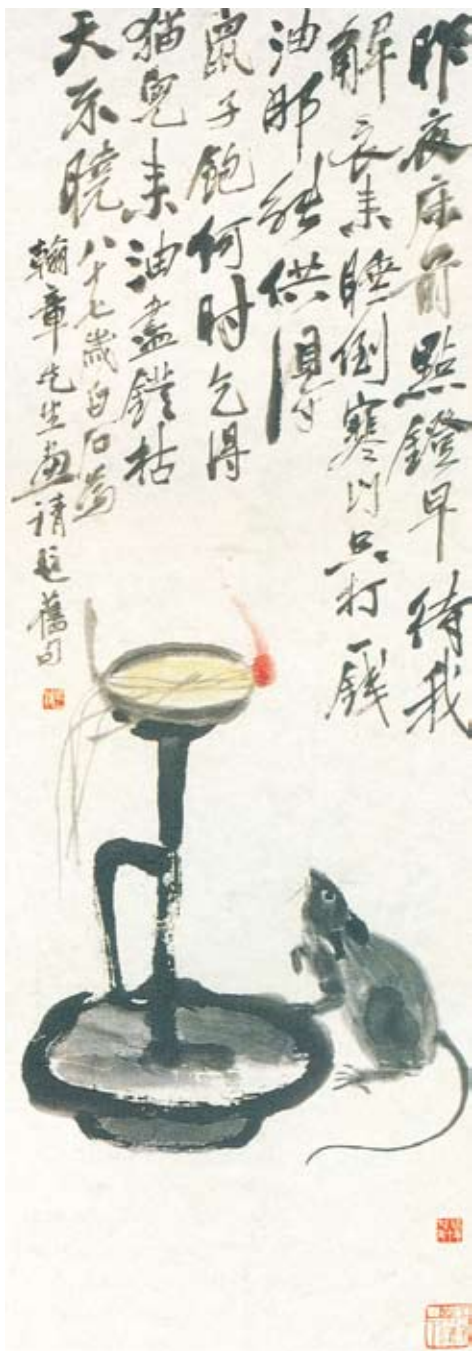 昨夜床前點鐙早待我
解衣来睡倒寒门只打一錢
油那能供得
鼠子飽何时乞得
猫兒来油盡鐙枯
天不曉八十七歲白石
翰章先生画請題舊句